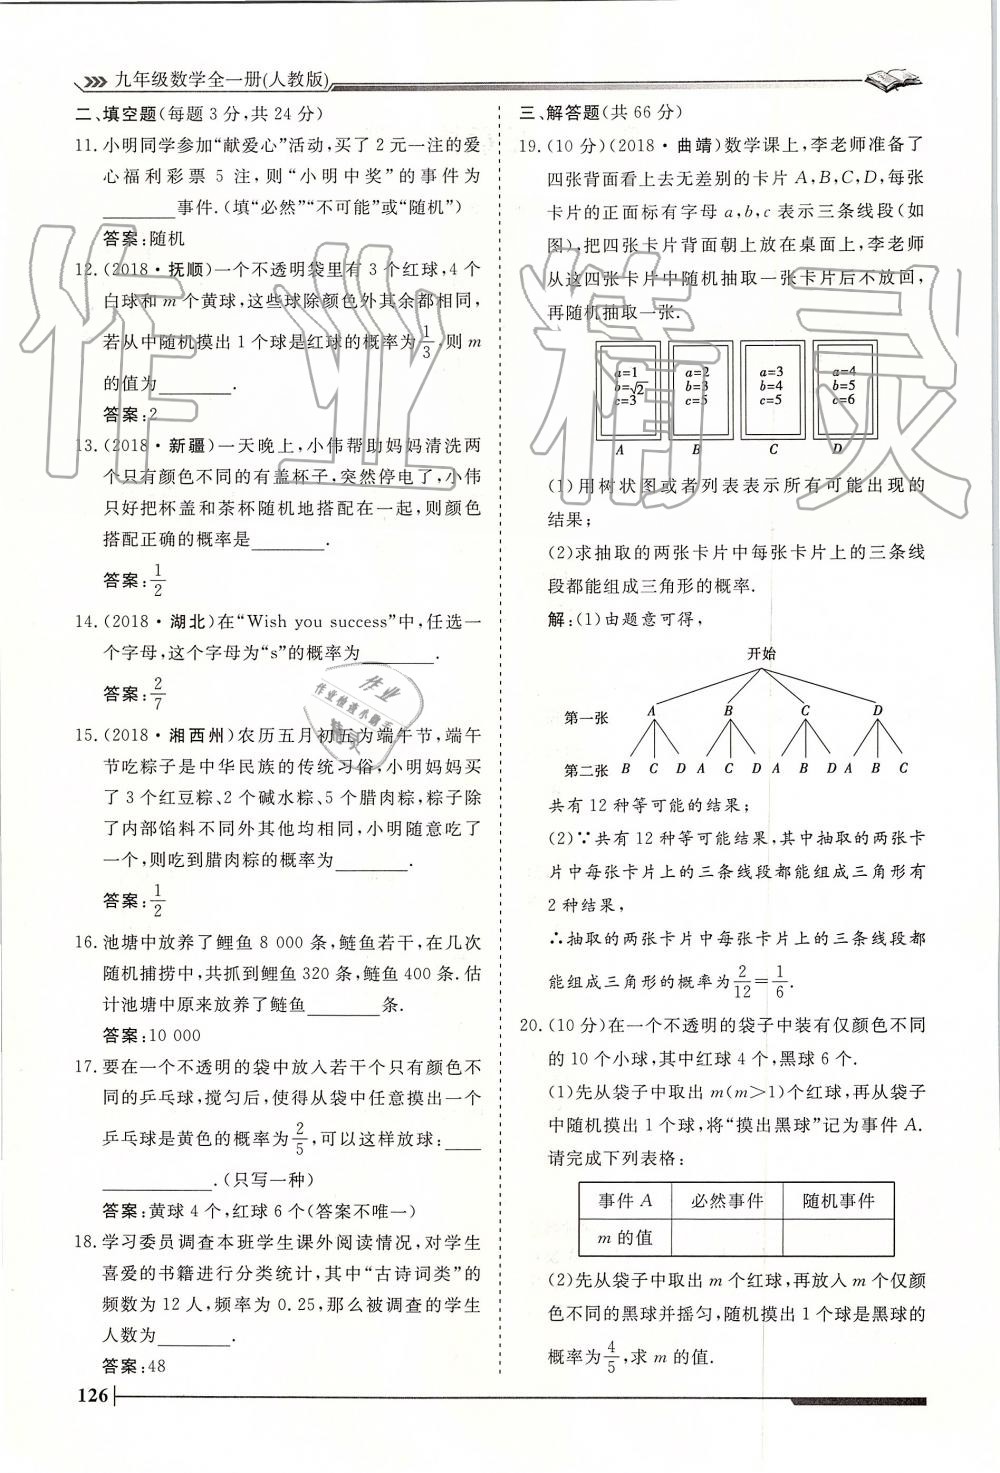 九年级数学全一册(人教版)
二、填空题(每题 3 分,共 24 分)
11.小明同学参加“献爱心”活动,买了 2 元一注的爱
心福利彩票 5 注,则“小明中奖”的事件为
________事件.(填“必然”“不可能”或“随机”)
答案:随机
12.(2018·抚顺)一个不透明袋里有 3 个红球,4 个
白球和 m 个黄球,这些球除颜色外其余都相同,
若从中随机摸出 1 个球是红球的概率为1/3,则 m
的值为________.
答案:2
13.(2018·新疆)一天晚上,小伟帮助妈妈清洗两
个只有颜色不同的有盖杯子,突然停电了,小伟
只好把杯盖和茶杯随机地搭配在一起,则颜色
搭配正确的概率是________.
答案:1/2
14.(2018·湖北)在“Wish you success”中,任选一
个字母,这个字母为“s”的概率为________.
答案:2/7
15.(2018·湘西州)农历五月初五为端午节,端午
节吃粽子是中华民族的传统习俗,小明妈妈买
了 3 个红豆粽、2 个碱水粽、5 个腊肉粽,粽子除
了内部馅料不同外其他均相同,小明随意吃了
一个,则吃到腊肉粽的概率为________.
答案:1/2
16.池塘中放养了鲤鱼 8 000 条,鲢鱼若干,在几次
随机捕捞中,共抓到鲤鱼 320 条,鲢鱼 400 条.估
计池塘中原来放养了鲢鱼________条.
答案:10 000
17.要在一个不透明的袋中放入若干个只有颜色不
同的乒乓球,搅匀后,使得从袋中任意摸出一个
乒乓球是黄色的概率为2/5,可以这样放球:____
____________.(只写一种)
答案:黄球 4 个,红球 6 个(答案不唯一)
18.学习委员调查本班学生课外阅读情况,对学生
喜爱的书籍进行分类统计,其中“古诗词类”的
频数为 12 人,频率为 0.25,那么被调查的学生
人数为________.
答案:48
126
三、解答题(共 66 分)
19.(10 分)(2018·曲靖)数学课上,李老师准备了
四张背面看上去无差别的卡片 A,B,C,D,每张
卡片的正面标有字母 a,b,c 表示三条线段(如
图),把四张卡片背面朝上放在桌面上,李老师
从这四张卡片中随机抽取一张卡片后不放回,
再随机抽取一张.
a=1 a=2 a=3 a=4
b=√2 b=3 b=4 b=5
c=3 c=5 c=5 c=6
A B C D
(1)用树状图或者列表表示所有可能出现的
结果;
(2)求抽取的两张卡片中每张卡片上的三条线
段都能组成三角形的概率.
解:(1)由题意可得,
开始
第一张 A B C D
第二张 B C D A C D A B D A B C
共有 12 种等可能的结果;
(2)∵共有 12 种等可能结果,其中抽取的两张卡
片中每张卡片上的三条线段都能组成三角形有
2 种结果,
∴抽取的两张卡片中每张卡片上的三条线段都
能组成三角形的概率为2/12=1/6.
20.(10 分)在一个不透明的袋子中装有仅颜色不同
的 10 个小球,其中红球 4 个,黑球 6 个.
(1)先从袋子中取出 m(m>1)个红球,再从袋子
中随机摸出 1 个球,将“摸出黑球”记为事件 A.
请完成下列表格:
事件 A 必然事件 随机事件
m 的值
(2)先从袋子中取出 m 个红球,再放入 m 个仅颜
色不同的黑球并摇匀,随机摸出 1 个球是黑球的
概率为4/5,求 m 的值.
作业精灵
作业
作业检查小助手
精灵